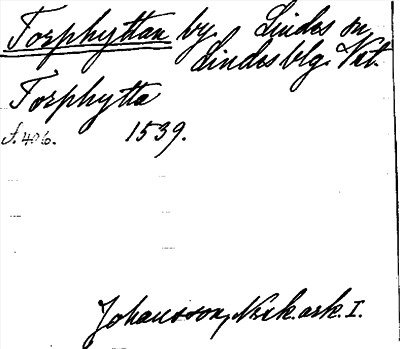 Torphyttan by. Lindes sn
Lindesblg. Vstm.
Torphytta
s. 406. 1539.
Johansson, Norask. ark. I.